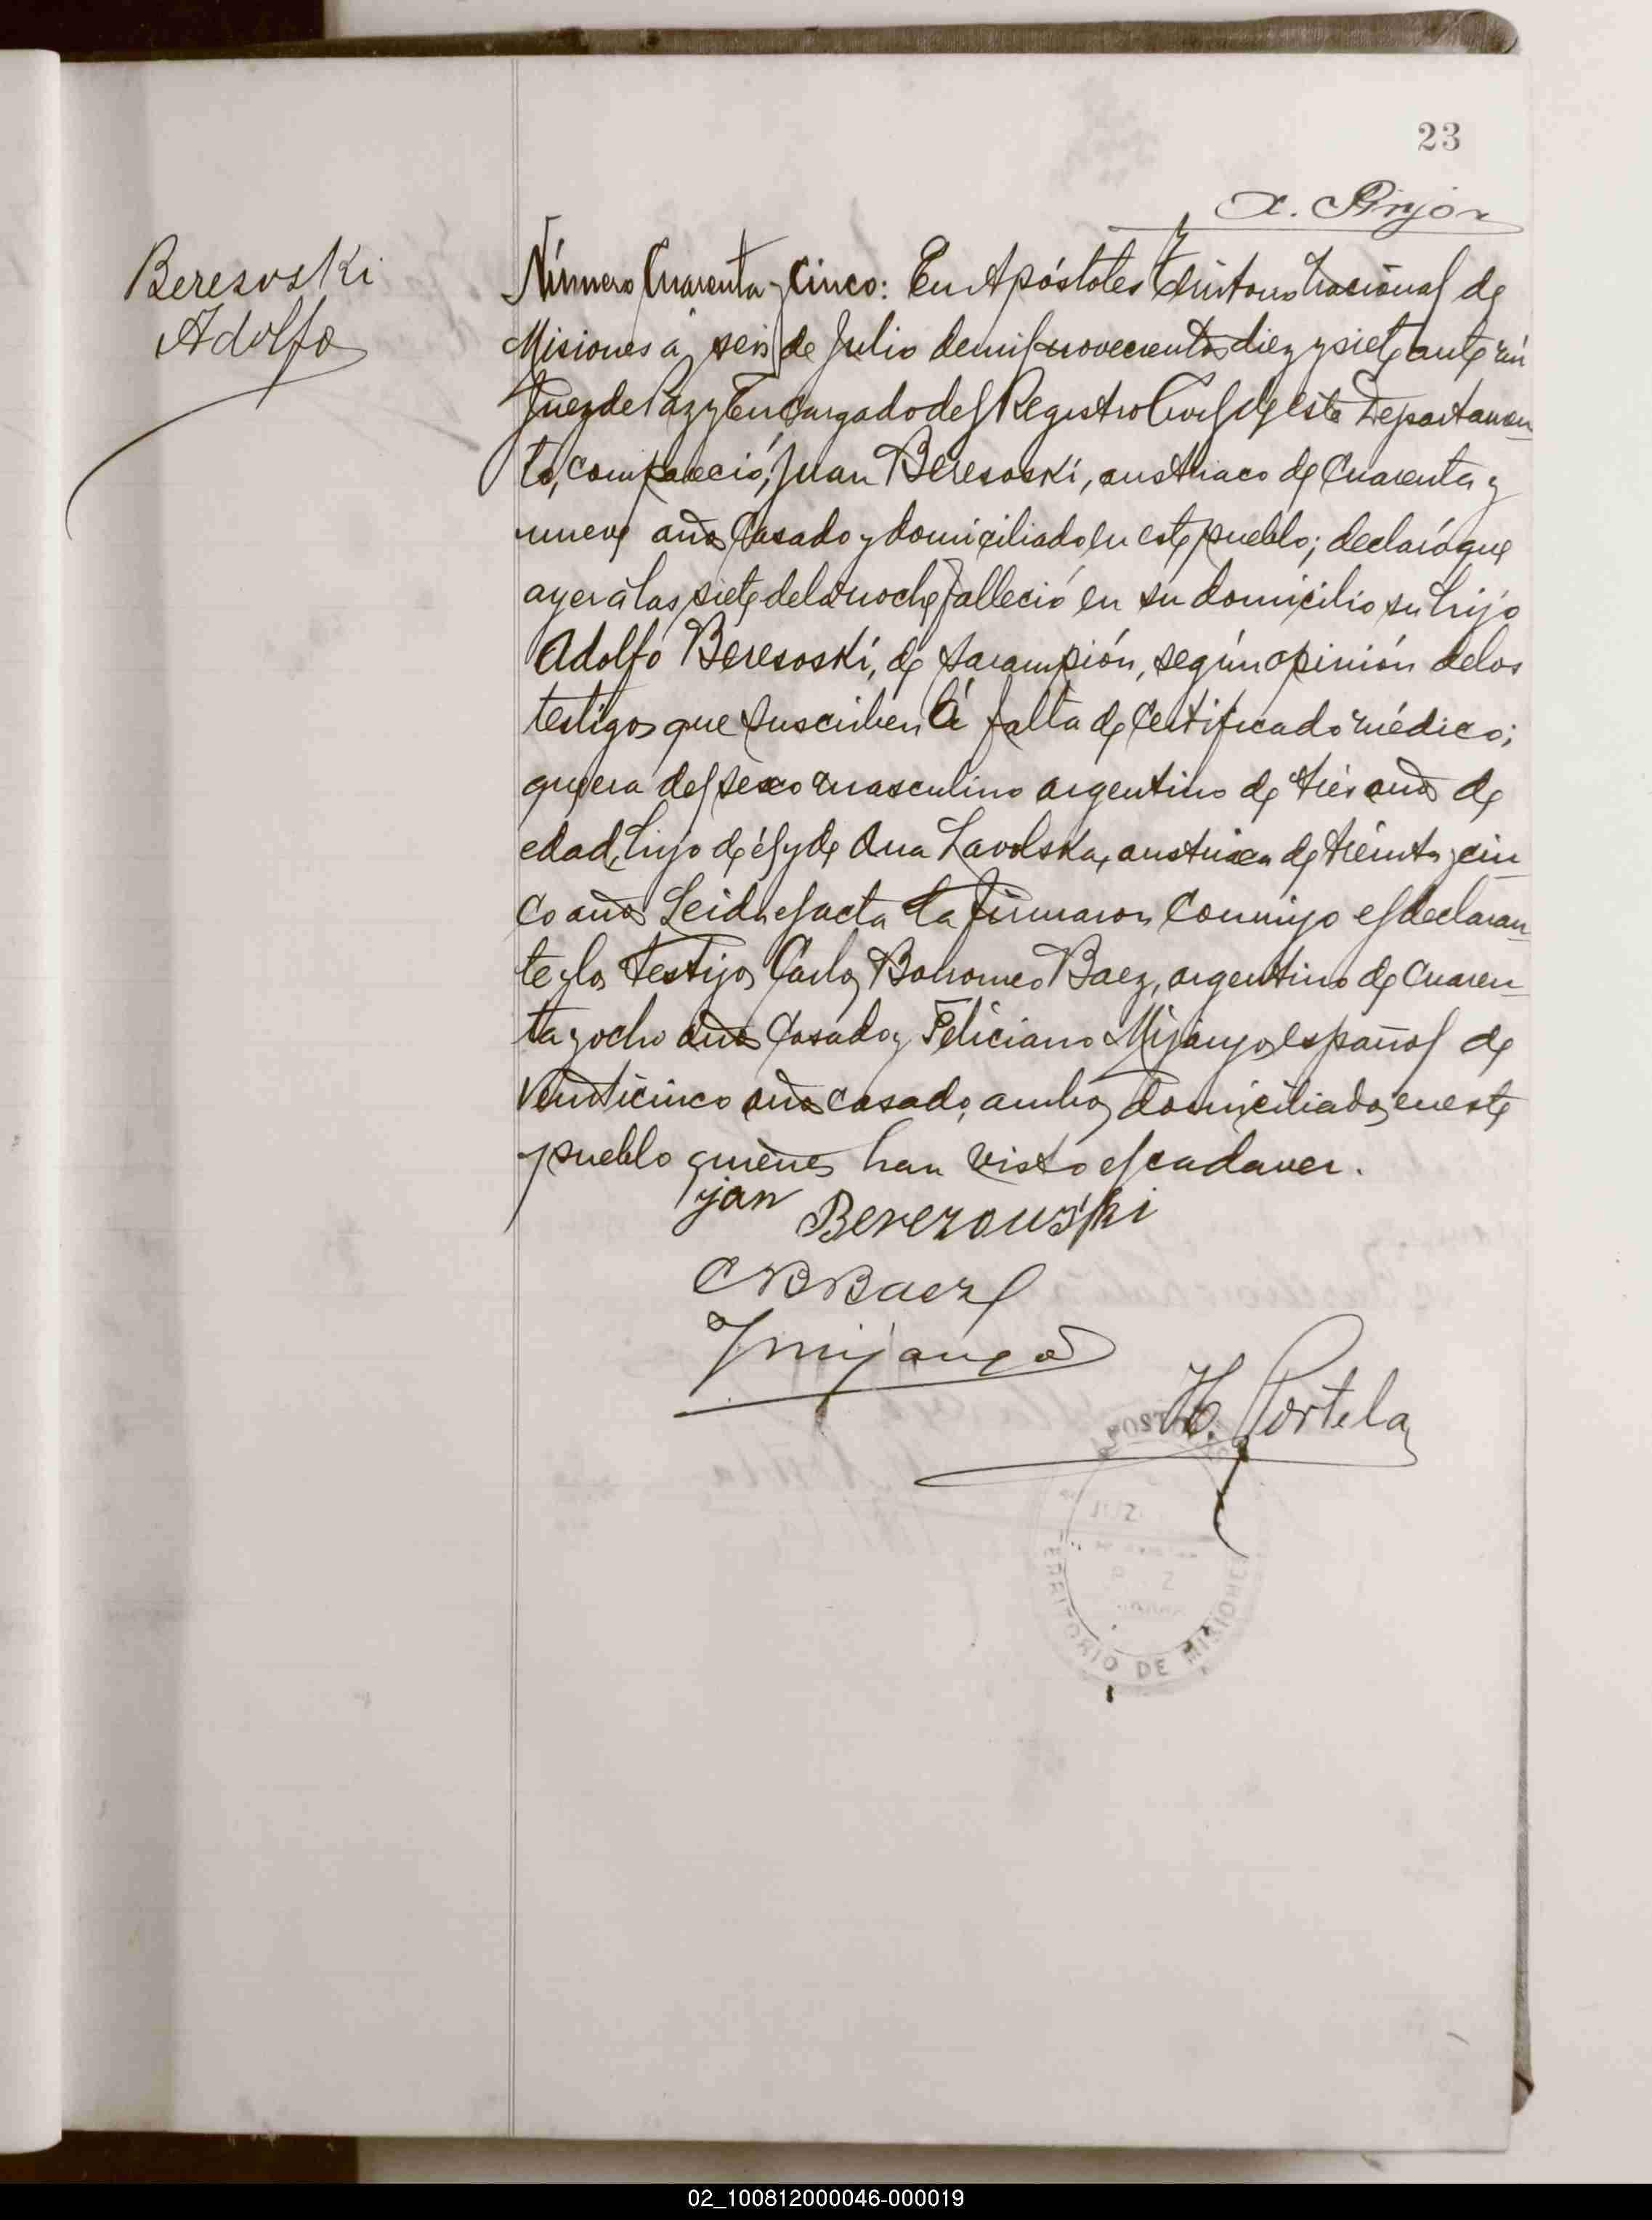 23
Beresoski
Adolfo
Número Cuarenta y Cinco: En Apóstoles Territorio Nacional de
Misiones á seis de Julio de mil novecientos diez y siete ante mí
Juez de Paz y Encargado del Registro Civil de este Departamen-
to, compareció, Juan Beresoski, austriaco de Cuarenta y
nueve años Casado y domiciliado en este pueblo; declaró que
ayer á las siete de la noche falleció en su domicilio su hijo
Adolfo Beresoski, de sarampión, según opinión de los
testigos que suscriben á falta de Certificado médico;
que era del sexo masculino argentino de tres años de
edad, hijo de él y de Ana Lavolska, austriaca de treinta y cin-
co años Leida el acta la firmaron Conmigo el declaran-
te y los testigos Carlos Borromeo Baez, argentino de Cuaren-
ta y ocho años Casado y Feliciano Mijangos español de
Veinticinco años casado, ambos domiciliados en este
pueblo quienes han visto el cadaver.
jan Berezouski
CBBaez
Fmijangos
H. Portela
TERRITORIO DE MISIONES
02_100812000046-000019